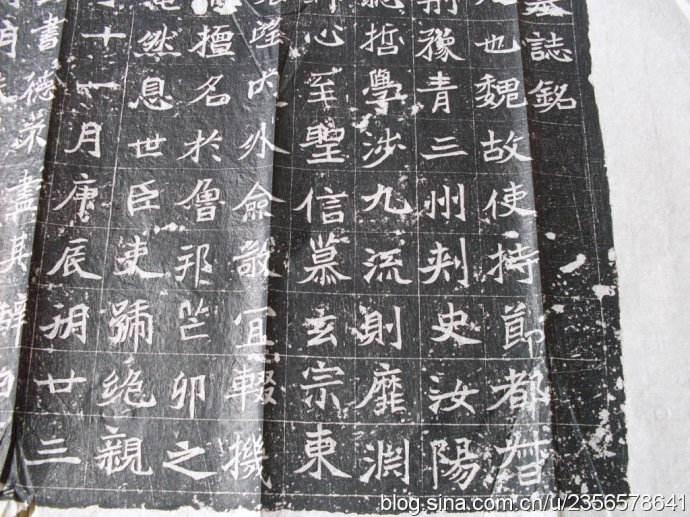 墓誌銘
也魏故使持節都督
荊豫青三州刾史汝陽
哲學涉九流則靡淵
心至聖信慕玄宗東
內外僉敬宜輟機
擅名於魯邦芒卯之
然息世臣吏號絶親
十一月庚辰朔廿三
書德
盡其
月
blog.sina.com.cn/u/2356578641